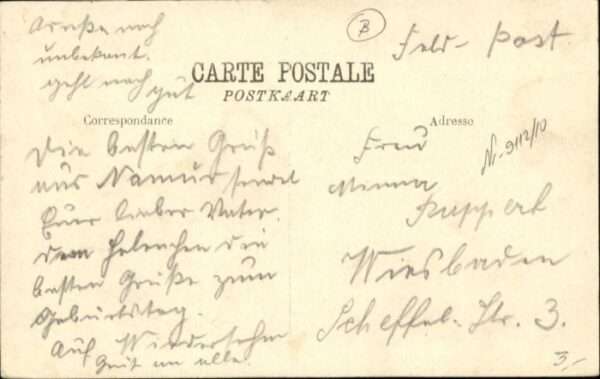 Adresse noch
unbekant.
geht noch gut
B
Feld-Post
CARTE POSTALE
POSTKAART
Correspondance
Adresse
Nr. 9112/10
Die besten Grüße
aus Namur sendet
Euer lieber Vater.
dem Helenchen die
besten Grüße zum
Geburtstag.
Auf Wiedersehn
Gruß an alle.
Frau
Minna
Ruppert
Wiesbaden
Scheffel-Str. 3.
3,-